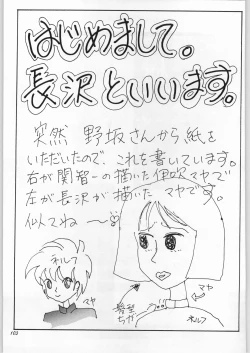 はじめまして。
長沢といいます。
突然 野坂さんから紙を
いただいたので、これを書いています。
右が関智一の描いた伊吹マヤで
左が長沢が描いた マヤです。
似てね〜
ネルフ
マヤ
マヤ
ネルフ
102